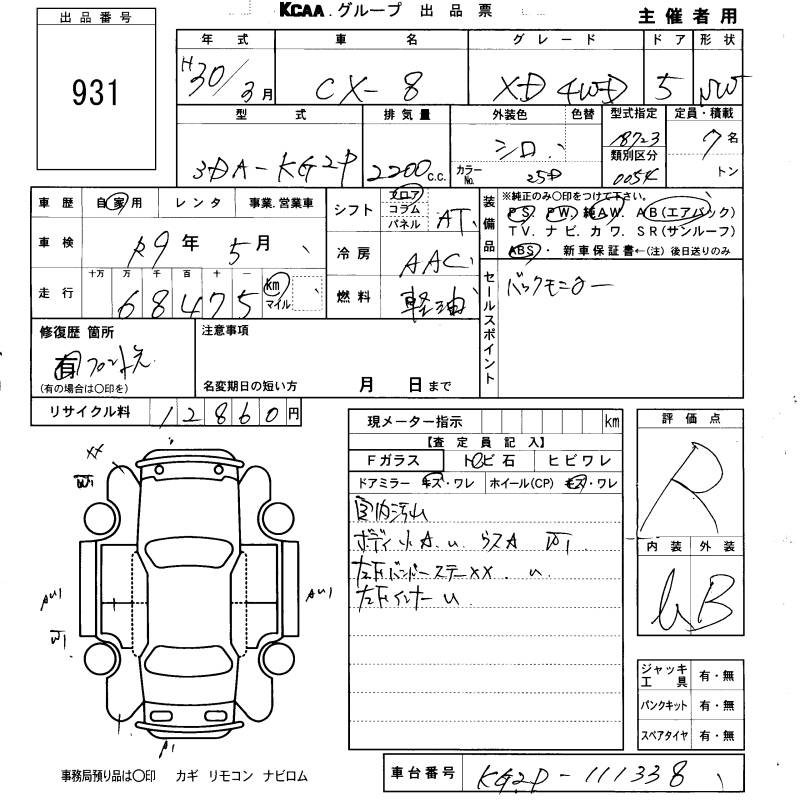 KCAA グループ 出品票
主催者用
出品番号
931
年式 車名 グレード ドア 形状
H30/3月 CX-8 XD 4WD 5 NW
型式 排気量 外装色 色替 型式指定 定員・積載
3DA-KG2P 2200 c.c. シロ カラーNo. 25D 18723 7名
類別区分 0054 トン
車歴 自家用 レンタ 事業.営業車
車検 R9年5月
走行 十万 万 千 百 十 一
68475 km マイル
シフト フロア コラム パネル AT
冷房 AAC
燃料 軽油
装備品 ※純正のみ○印をつけて下さい。
PS PW 純AW. AB(エアバック)
TV. ナビ. カワ. SR(サンルーフ)
ABS・新車保証書←(注)後日送りのみ
セールスポイント
バックモニター
修復歴 箇所
有
(有の場合は○印を)
注意事項
名変期日の短い方 月 日まで
リサイクル料 12860円
現メーター指示 km
【査定員記入】
Fガラス トビ石 ヒビワレ
ドアミラー キズ・ワレ ホイール(CP) キズ・ワレ
室内汚れ
ボディ小A.U. ラスA W1
左Fバンパーステー××. U
左Fインナー U
評価点
R
内装 外装
B
××
W1
AU1
W1
AU1
A1
ジャッキ工具 有・無
パンクキット 有・無
スペアタイヤ 有・無
事務局預り品は○印 カギ リモコン ナビロム
車台番号 KG2P-111338